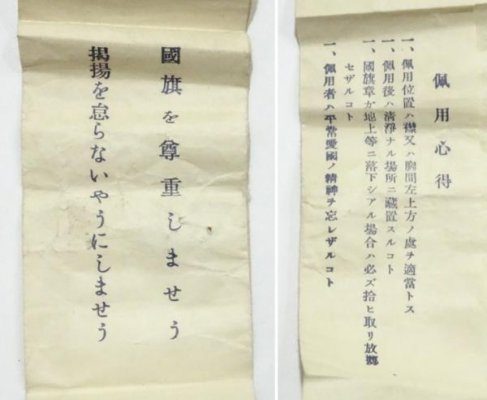 國旗を尊重しませう
揭揚を怠らないやうにしませう
佩用心得
一、佩用位置ハ襟又ハ胸間左上方ノ處ヲ適當トス
一、佩用後ハ清淨ナル場所ニ藏置スルコト
一、國旗章ガ地上等ニ落下シアル場合ハ必ズ拾ヒ取リ放擲
セザルコト
一、佩用者ハ平常愛國ノ精神ヲ忘レザルコト